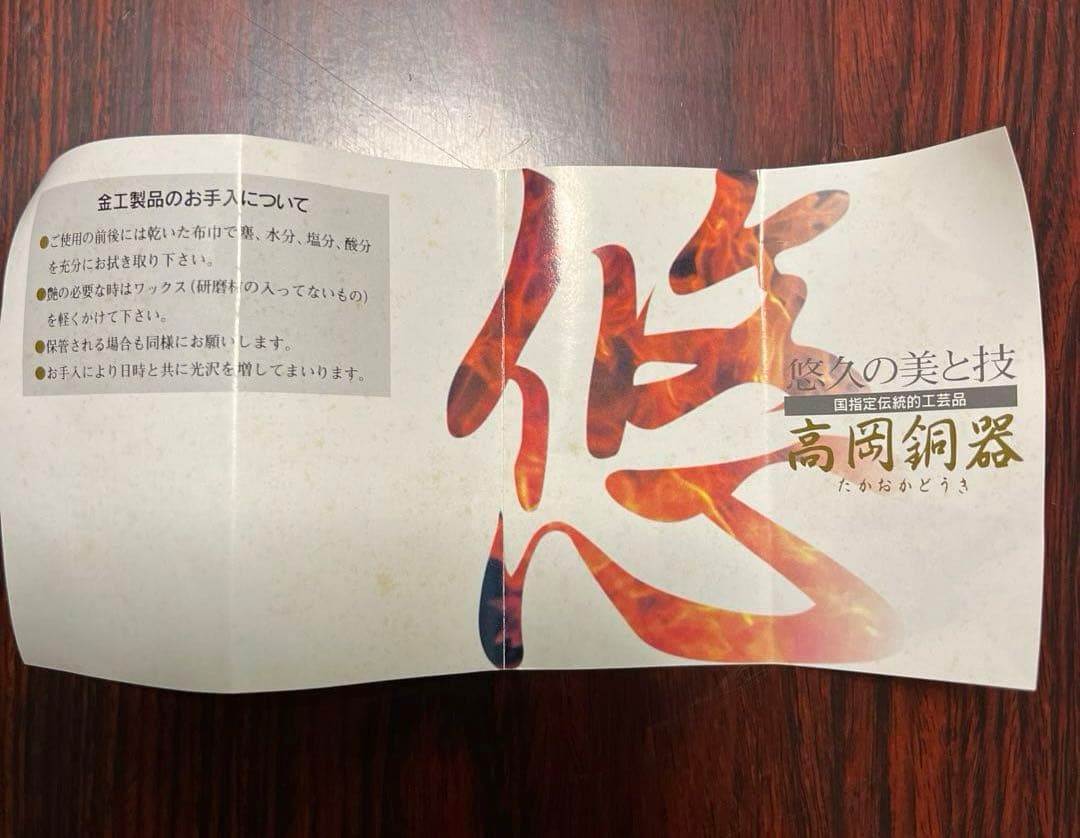 金工製品のお手入について
●ご使用の前後には乾いた布巾で塵、水分、塩分、酸分
を充分にお拭き取り下さい。
●艶の必要な時はワックス(研磨材の入ってないもの)
を軽くかけて下さい。
●保管される場合も同様にお願いします。
●お手入により日時と共に光沢を増してまいります。
悠
悠久の美と技
国指定伝統的工芸品
高岡銅器
たかおかどうき